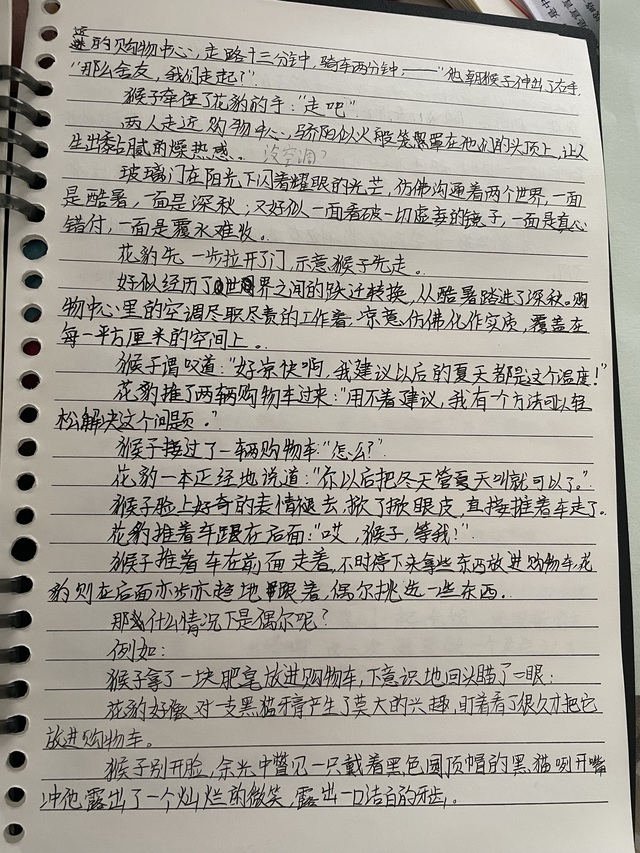 的购物中心，走路十三分钟，骑车两分钟，——“他朝猴子伸出了右手，
“那么金友，我们走起？”
猴子牵住了花豹的手：“走吧”
两人走近购物中心，骄阳似火般笼罩在他们的头顶上，让人
生出黏腻的燥热感。没空调？
玻璃门在阳光下闪着耀眼的光芒，仿佛沟通着两个世界，一面
是酷暑，一面是深秋；又好似一面看破一切虚妄的镜子，一面是真心
错付，一面是覆水难收。
花豹先一步拉开了门，示意猴子先走。
好似经历了世界之间的跃迁转换，从酷暑踏进了深秋。购
物中心里的空调尽职尽责的工作着，凉意仿佛化作实质，覆盖在
每一平方厘米的空间上。
猴子谓叹道：“好凉快啊，我建议以后的夏天都是这个温度！”
花豹推了两辆购物车过来：“用不着建议，我有一个方法可以轻
松解决这个问题。”
猴子接过了一辆购物车：“怎么？”
花豹一本正经地说道：“你以后把冬天管夏天叫就可以了。”
猴子脸上好奇的表情褪去，掀了掀眼皮，直接推着车走了。
花豹推着车跟在后面：“哎，猴子，等我！”
猴子推着车在前面走着，不时停下来拿些东西放进购物车，花
豹则在后面亦步亦趋地跟着，偶尔挑选一些东西。
那什么情况下是偶尔呢？
例如：
猴子拿了一块肥皂放进购物车，下意识地回头瞄了一眼：
花豹好像对一支黑猫牙膏产生了莫大的兴趣，盯着看了很久才把它
放进购物车。
猴子别开脸，余光中瞥见一只戴着黑色圆顶帽的黑猫咧开嘴
冲他露出了一个灿烂的微笑，露出一口洁白的牙齿。